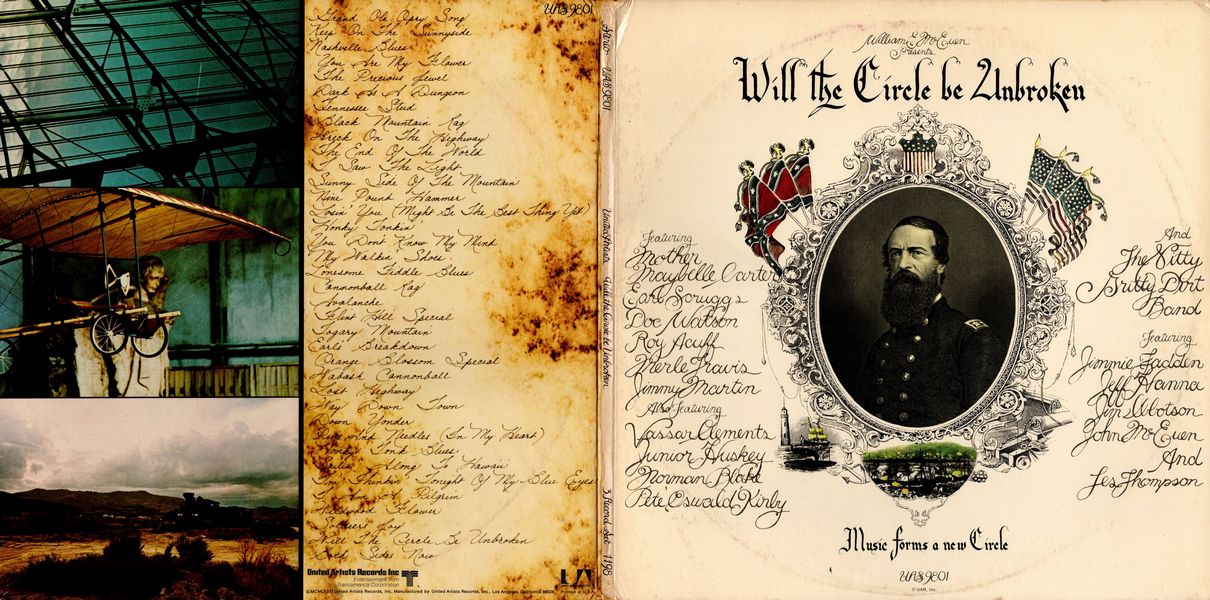 UAS 9801
Grand Ole Opry Song
Keep On The Sunnyside
Nashville Blues
You Are My Flower
The Precious Jewel
Dark As A Dungeon
Tennessee Stud
Black Mountain Rag
Wreck On The Highway
The End Of The World
I Saw The Light
Sunny Side Of The Mountain
Nine Pound Hammer
Losin' You (Might Be The Best Thing Yet)
Honky Tonkin'
You Don't Know My Mind
My Walkin' Shoes
Lonesome Fiddle Blues
Cannonball Rag
Avalanche
Flint Hill Special
Togary Mountain
Earl's Breakdown
Orange Blossom Special
Wabash Cannonball
Lost Highway
Way Down Town
Down Yonder
Pins And Needles (In My Heart)
Honky Tonk Blues
Sailin' Along To Hawaii
I'm Thinkin' Tonight Of My Blue Eyes
I Am A Pilgrim
Wildwood Flower
Soldier's Joy
Will The Circle Be Unbroken
Both Sides Now
United Artists Records Inc
Entertainment from
Transamerica Corporation
UA
©MCMLXXII United Artists Records, Inc., Manufactured by United Artists Records, Inc., Los Angeles, California 90028
Printed in U.S.A.
Stereo UAS 9801 United Artists Will the Circle be Unbroken 3 Record Set 1198
William E. McEuen
Presents
Will the Circle be Unbroken
Featuring
Mother
Maybelle Carter
Earl Scruggs
Doc Watson
Roy Acuff
Merle Travis
Jimmy Martin
Also featuring
Vassar Clements
Junior Huskey
Norman Blake
Pete Oswald Kirby
And
The Nitty
Gritty Dirt
Band
Featuring
Jimmie Fadden
Jeff Hanna
Jim Ibbotson
John McEuen
And
Les Thompson
Music forms a new Circle
UAS 9801
© UAR, Inc.